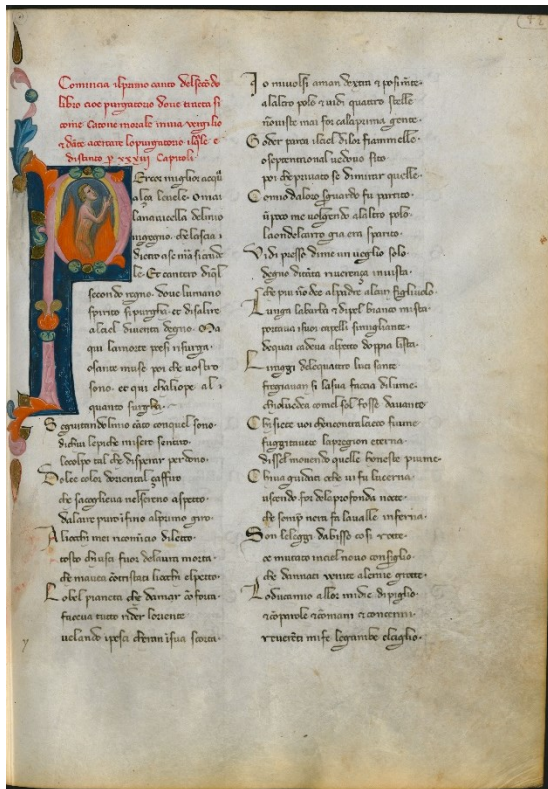 42
Comincia ilprimo canto delseco͂do
libro cioe purgatorio doue tracta si
come Catone morale inuia uirgilio
e da͂te acercare lo purgatorio. ilq͂le e
distinto p xxxiii Capitoli
Per coʳ miglior acq͂
alça leuele. omai
lanauicella delmio
ingegno. che lascia i
dietro a se mar si crude
le. Et cantero diq͂l
secondo regno. doue lumano
spirito sipurgha. et disalire
alciel diuenta degno. Ma
qui lamorte poesi risurga.
o sante muse poi che uostro
sono. et qui chaliope al i
quanto surgha.
Seguitando ilmio ca͂to conquel sono.
dichui lepiche misere sentiro.
lo colpo tal che disperar perdono.
Dolce color doriental çaffiro
che saccoglieua nelsereno aspetto.
dalaire puro ifino alprimo giro.
Aliocchi mei ricomicio diletto.
tosto chusci fuor delaura morta.
che mauea co͂tristati liocchi elpecto.
Lo bel pianeta che damar co͂forta.
faceua tutto rider loriente
uelando ipesci cheran isua scorta.
Io miuolsi aman dextra et posi me͂te.
alaltro polo et uidi quattro stelle
no͂ uiste mai for cala prima gente.
Goder parea ilciel dilor fiammelle.
o septentrional uedouo sito
poi che priuato se dimirar quelle.
Comio daloro sguardo fu partito.
u͂ poco me uolgendo alaltro polo.
la ondelcarro gia era sparito.
Vidi presso dime un ueglio solo.
degno ditanta riuerença inuista.
che piu no͂ dee alpadre alcun figliuolo.
Lunga labarba et dipel bianco mista.
portaua isuoi capelli simigliante.
dequai cadeua alpecto doppia lista.
Li raggi delequattro luci sante
fregiauan si lasua faccia dilume.
chiolouedea comel sol fosse dauante.
Chi siete uoi checontralceco fiume
fuggitiuete lapregion eterna.
dissel mouendo quelle honeste piume.
Chi ua guidati o chi ui fu lucerna.
uscendo for dela profonda nocte.
che semp nera fa laualle inferna.
Son leleggi dabisso cosi rotte.
o e mutato inciel nouo consiglio.
che dannati uenite alemie grotte.
Lo duca mio allor midie dipiglio.
et co͂ parole et co͂mani et conce͂ni.
reuere͂ti mi fe legambe elciglio.